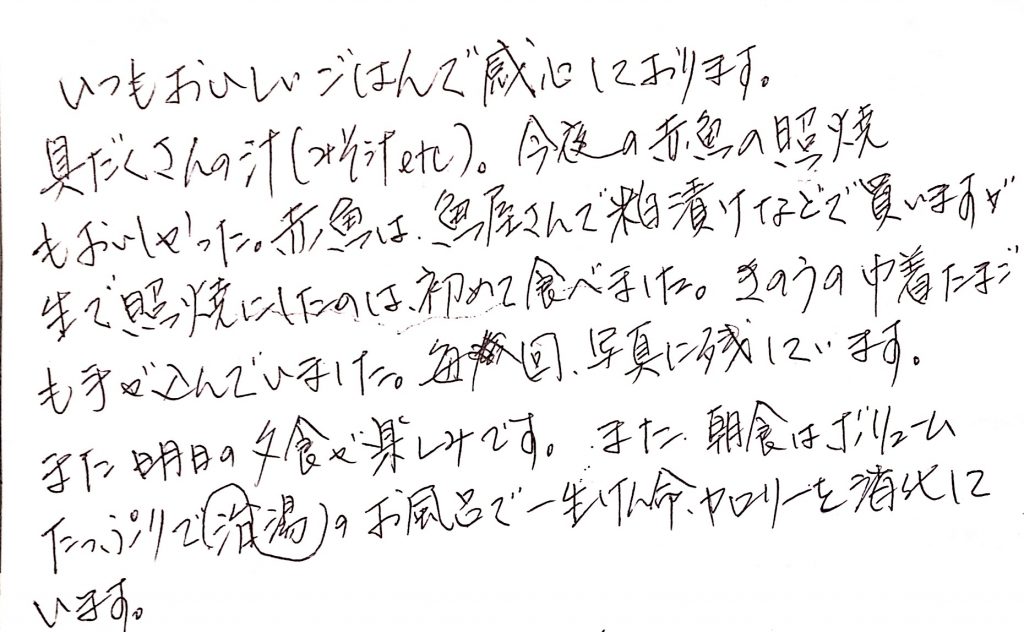 いつもおいしいごはんで感心しております。
具だくさんの汁(みそ汁etc)。今夜の赤魚の照焼
もおいしかった。赤魚は、魚屋さんで粕漬けなどで買いますが
生で照焼にしたのは、初めて食べました。きのうの巾着たまご
も手が込んでいました。毎回、写真に残しています。
また明日の夕食が楽しみです。また、朝食はボリューム
たっぷりで(湯)のお風呂で一生けん命、カロリーを消化して
います。